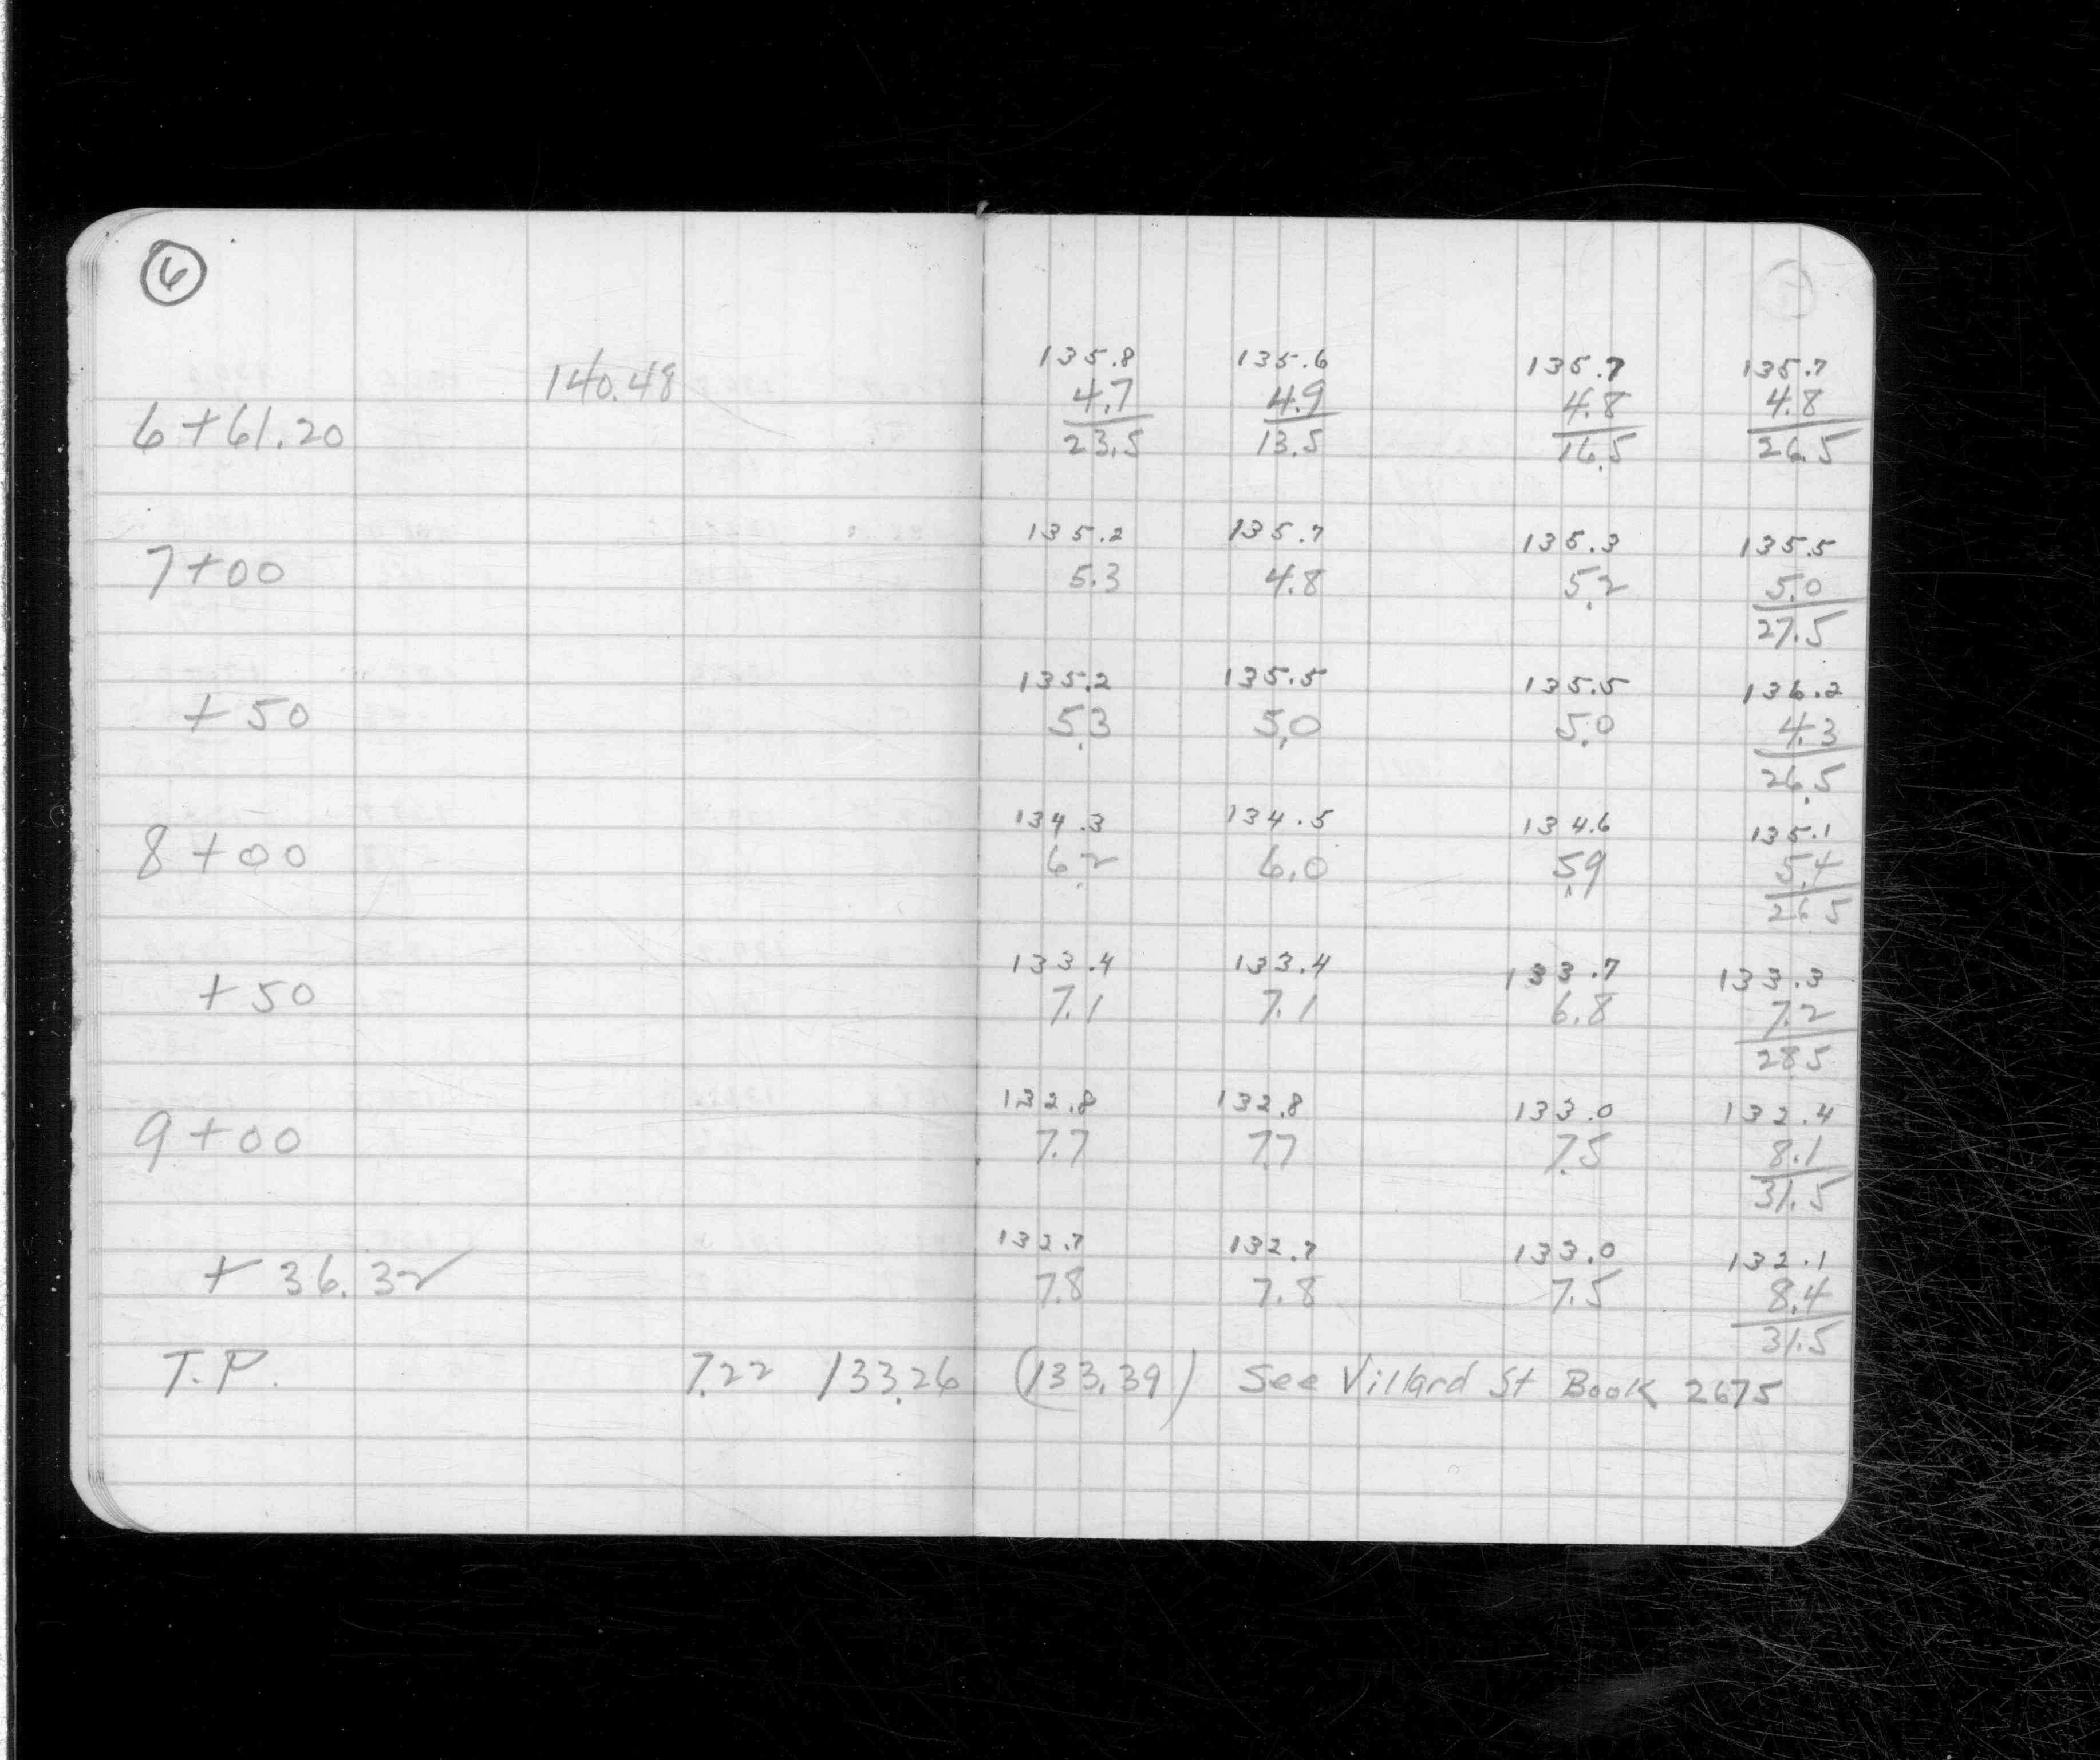 6
135.8 135.6 135.7 135.7
140.48 4.7 4.9 4.8 4.8
6+61.20 23.5 13.5 16.5 26.5
135.2 135.7 135.3 135.5
7+00 5.3 4.8 5.2 5.0
27.5
135.2 135.5 135.5 136.2
+50 5.3 5.0 5.0 4.3
26.5
134.3 134.5 134.6 135.1
8+00 6.2 6.0 5.9 5.4
26.5
133.4 133.4 133.7 133.3
+50 7.1 7.1 6.8 7.2
28.5
132.8 132.8 133.0 132.4
9+00 7.7 7.7 7.5 8.1
31.5
132.7 132.7 133.0 132.1
+36.32 7.8 7.8 7.5 8.4
31.5
T.P. 7.22 133.26 (133.39) See Villard St Book 2675